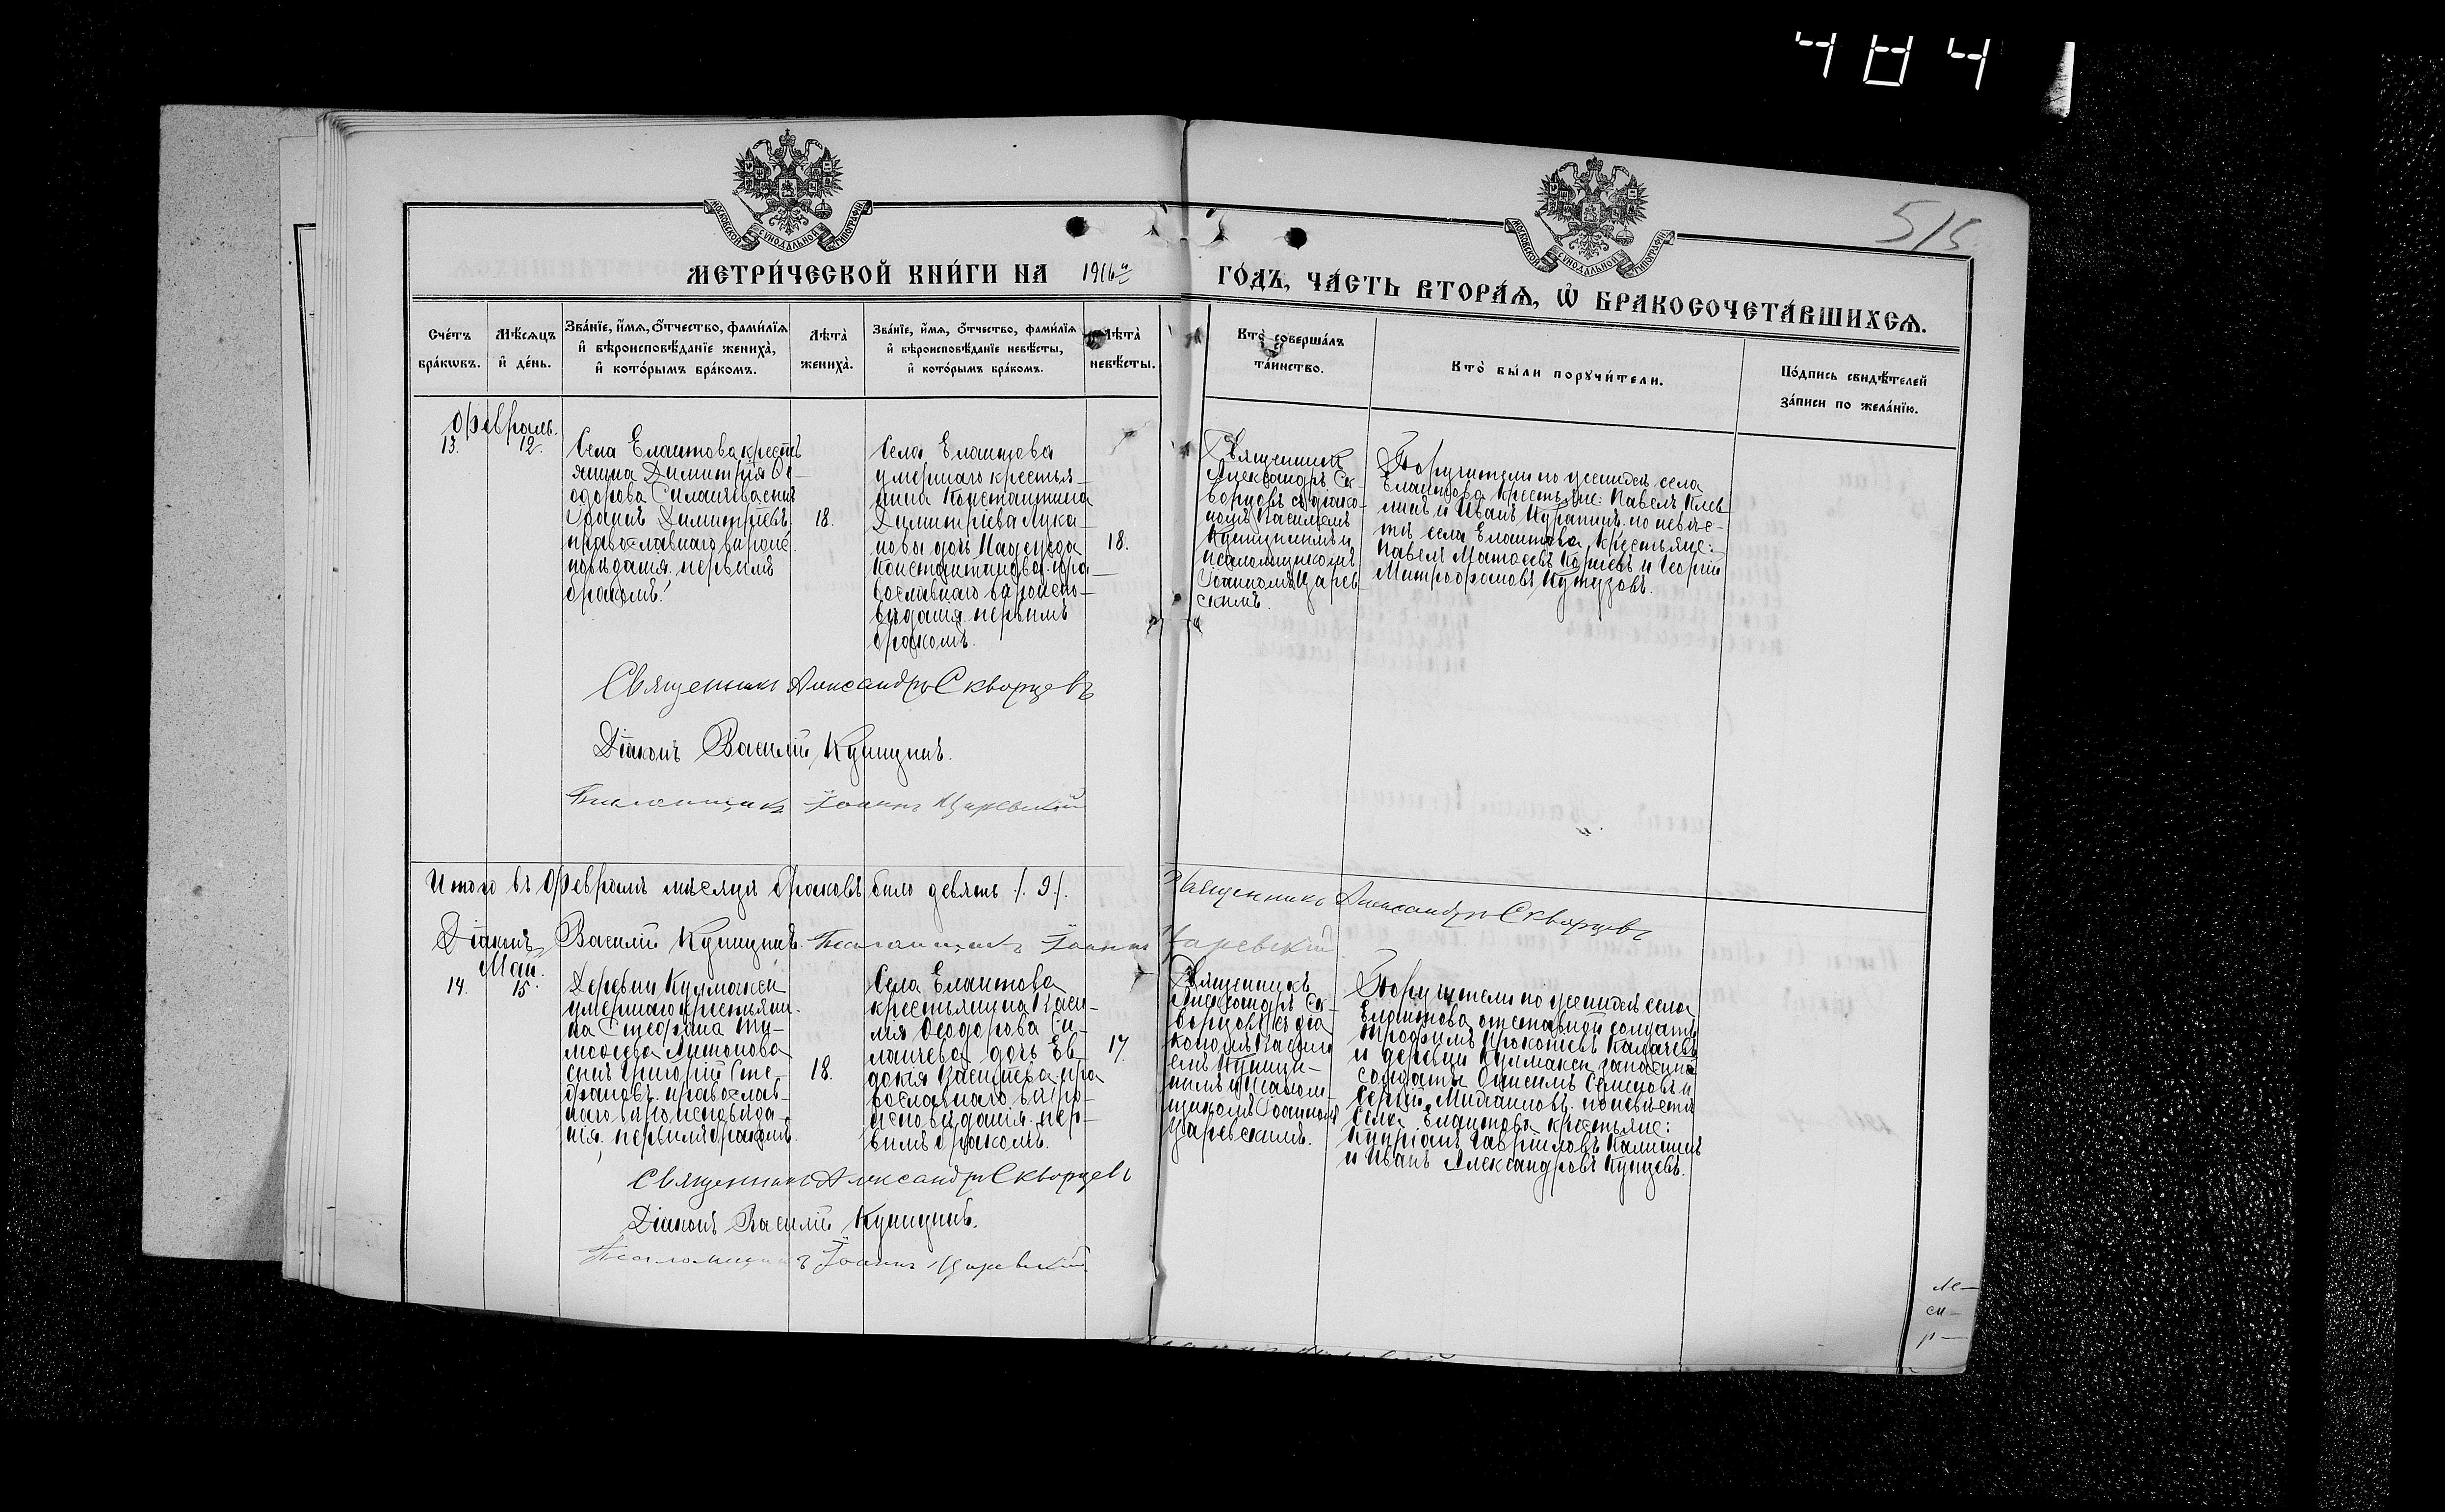 484
515
МОСКОВСКОЙ СУНОДАЛЬНОЙ ТИПОГРАФІИ
МОСКОВСКОЙ СУНОДАЛЬНОЙ ТИПОГРАФІИ
МЕТРИ́ЧЕСКОЙ КНИ́ГИ НА 1916й ГО́ДЪ, ЧА́СТЬ ВТОРА́Ѧ, Ѡ҆ БРАКОСОЧЕТА́ВШИХСѦ.
Сче́тъ бра́кѡвъ.
Мѣ́сѧцъ и҆ де́нь.
Зва́нїе, и҆́мѧ, ѻ҆́тчество, фами́лїѧ
и҆ вѣроисповѣ́данїе жениха̀,
и҆ кото́рымъ бра́комъ.
Лѣ́та жениха̀.
Зва́нїе, и҆́мѧ, ѻ҆́тчество, фами́лїѧ
и҆ вѣроисповѣ́данїе невѣ́сты,
и҆ кото́рымъ бра́комъ.
Лѣ́та невѣ́сты.
Кто̀ соверша́лъ
та́инство.
Кто̀ бы́ли порꙋчи́тели.
По́дпись свидѣ́телей
за́писи по жела́нїю.
Февраль.
13.
12.
Села Елаштова кресть
янина Димитрія Ѳе-
одорова Силанчева сынъ
Іоаннъ Димитріевъ
православнаго вѣроис
повѣданія. первымъ
бракомъ.
18.
Села Елаштова
умершаго крестья-
нина Константина
Димитріева Лука-
новы дочь Надежда
Константинова. пра-
вославнаго вѣроиспо-
вѣданія. первымъ
бракомъ.
18.
Священникъ
Александръ Ск
ворцовъ съ діако-
номъ Василіемъ
Куницинымъ и
псаломщикомъ
Іоанномъ Царев
скимъ.
Поручители по женихѣ села
Елаштова крестьяне: Павелъ
и Иванъ по невѣс-
тѣ села Елаштова крестьяне:
Павелъ Матѳеевъ и Георгій
Митрофановъ Кутузовъ.
Священникъ Александръ Скворцевъ
Діаконъ Василій Куницинъ.
Псаломщикъ Іоаннъ Царевскій
Итого въ Февралѣ мѣсяцѣ браковъ было девять /.9/.
Священникъ Александръ Скворцевъ
Діаконъ Василій Куницинъ. Псаломщикъ Іоаннъ Царевскій
Май.
14.
15.
Деревни Кулмаксы
умершаго крестьяни-
на Стефана Ти-
моѳеева Антонова
сынъ Григорій Сте-
фановъ. православ-
наго вѣроисповѣда-
нія. первымъ бракомъ.
18.
Села Елаштова
крестьянина Васи-
лія Ѳеодорова Си-
ланчева дочь Ев-
докія Васильева пра
вославнаго вѣро-
исповѣданія. пер-
вымъ бракомъ.
17.
Священникъ
Александръ Ск-
ворцовъ съ діа
кономъ Василі
емъ Куници-
нымъ и псалом-
щикомъ Іоанномъ
Царевскимъ.
Поручители по женихѣ села
Елаштова отставной солдатъ
Трофимъ Прокопьевъ
и деревни Кулмаксы запасные
солдаты Онисимъ Семеновъ и
Сергій Михаиловъ. по невѣстѣ
села Елаштова крестьяне:
Кипріанъ Гавриловъ Калининъ
и Иванъ Александровъ Купцевъ.
Священникъ Александръ Скворцевъ
Діаконъ Василій Куницинъ.
Псаломщикъ Іоаннъ Царевскій